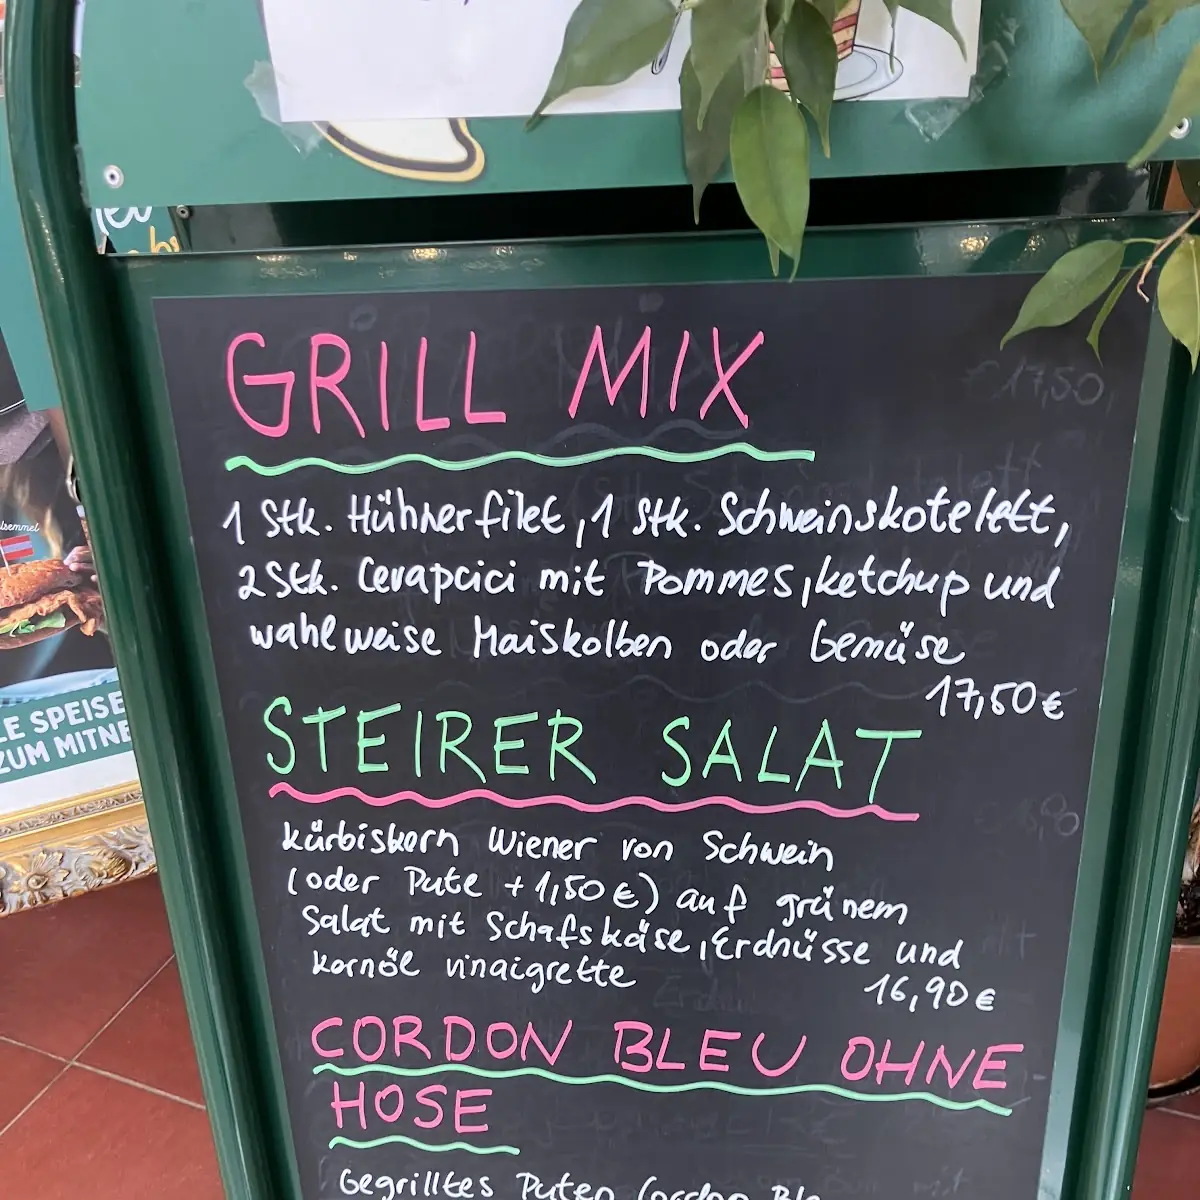 GRILL MIX
1 Stk. Hühnerfilet, 1 Stk. Schweinskotelett,
2 Stk. Cevapcici mit Pommes, ketchup und
wahlweise Maiskolben oder Gemüse
17,50 €
STEIRER SALAT
kürbiskern Wiener von Schwein
(oder Pute + 1,50 €) auf grünem
Salat mit Schafskäse, Erdnüsse und
kornöl vinaigrette
16,90 €
CORDON BLEU OHNE
HOSE
Gegrilltes Puten Cordon
LE SPEISE
ZUM MITNE